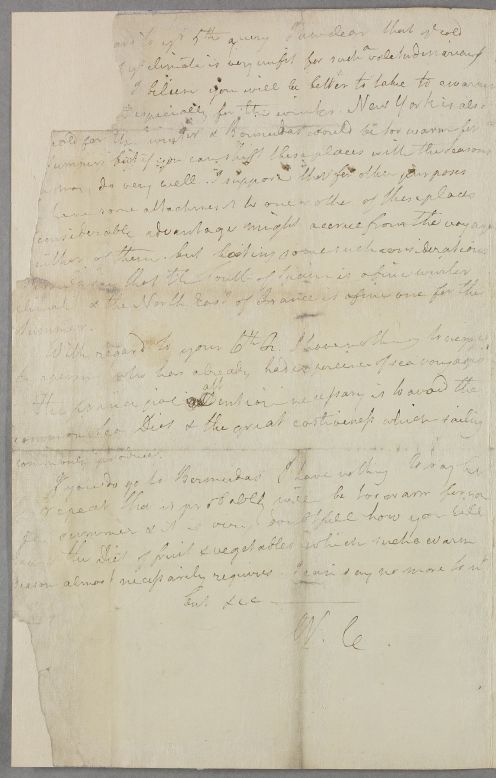 and to yr 5th query I am clear that yr cold
climate is very unfit for such a valetudinarian &
I believe you will be better to take to a warmer
Especially for the winter. New York is also
cold for the winter & Bermudas would be too warm for
summer but if you can shift these places with the seasons
may do very well. I suppose that for other purposes
have some attachment to one or other of these places
considerable advantage might accrue from the voyage
either of them. but some such considerations
that the south of is a fine winter
climate & the North East of France is a fine one for the
Summer.
With regard to your 6th Q. I have nothing to
who has already had experience of sea voyages
The principal attention necessary is to avoid the
common Sea Diet & the great costiveness which sailing
commonly produces.
If you do go to Bermudas I have nothing to say but
repeat that is probably will be too warm for you
summer & it is very doubtfull how you will
the Diet of fruit & vegetables which such a warm
season almost necessarily requires. I can say no more to it
but &c
W. C.